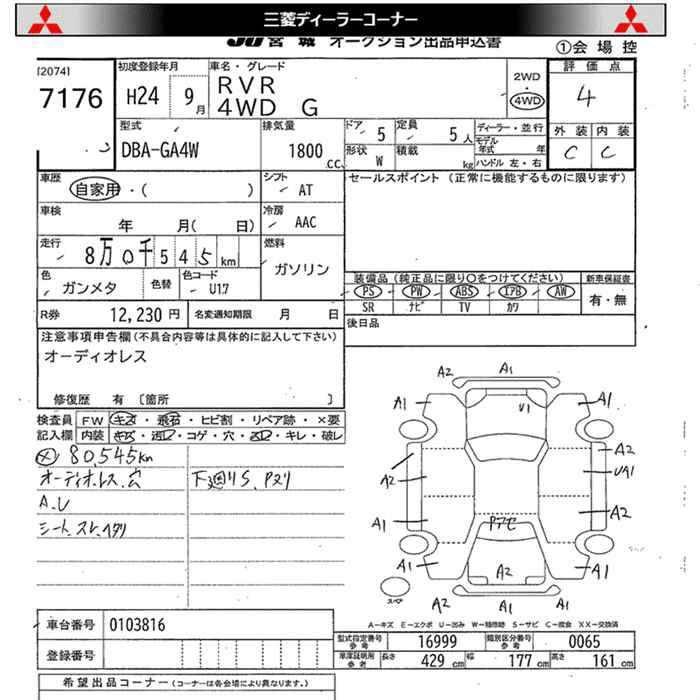 三菱ディーラーコーナー
JU宮城 オークション出品申込書
①会場控
[2074]
7176
初度登録年月
H24 9月
車名・グレード
RVR
4WD G
2WD
・
4WD
評価点
4
外装 内装
C C
型式
DBA-GA4W
排気量
1800 cc
ドア 5
定員 5人
形状 W
積載 kg
ディーラー・並行
モデル年式 年
ハンドル 左・右
車歴
自家用・( )
シフト
AT
セールスポイント (正常に機能するものに限ります)
車検
年 月( 日)
冷房
AAC
走行
8万0千545km
燃料
ガソリン
色
ガンメタ
色替
色コード
U17
装備品 (純正品に限り○をつけてください)
新車保証書
PS PW ABS エアB AW
有・無
SR ナビ TV カワ
R券 12,230円
名変通知期限 月 日
後日品
注意事項申告欄 (不具合内容等は具体的に記入して下さい)
オーディオレス
修復歴 有 〔箇所 〕
検査員 FW キズ・飛石・ヒビ割・リペア跡・×要
記入欄 内装 キズ・汚レ・コゲ・穴・スレ・キレ・破レ
メ 80,545km
オーディオレス、穴
下廻りS、Pヌリ
A、U
シートスレ、ヘタリ
A2 A1
A1 V1 A1
A2 A2
UA1
A1 A2
PアC
A1 A2 A1
A2 A1 A1
スペア
A-キズ E-エクボ U-凹み W-補修跡 S-サビ C-腐食 XX-交換済
車台番号 0103816
登録番号
型式指定番号 参考 16999
類別区分番号 参考 0065
車庫証明用 参考
長さ 429cm 幅 177cm 高さ 161cm
希望出品コーナー (コーナーは各会場により異なります。)